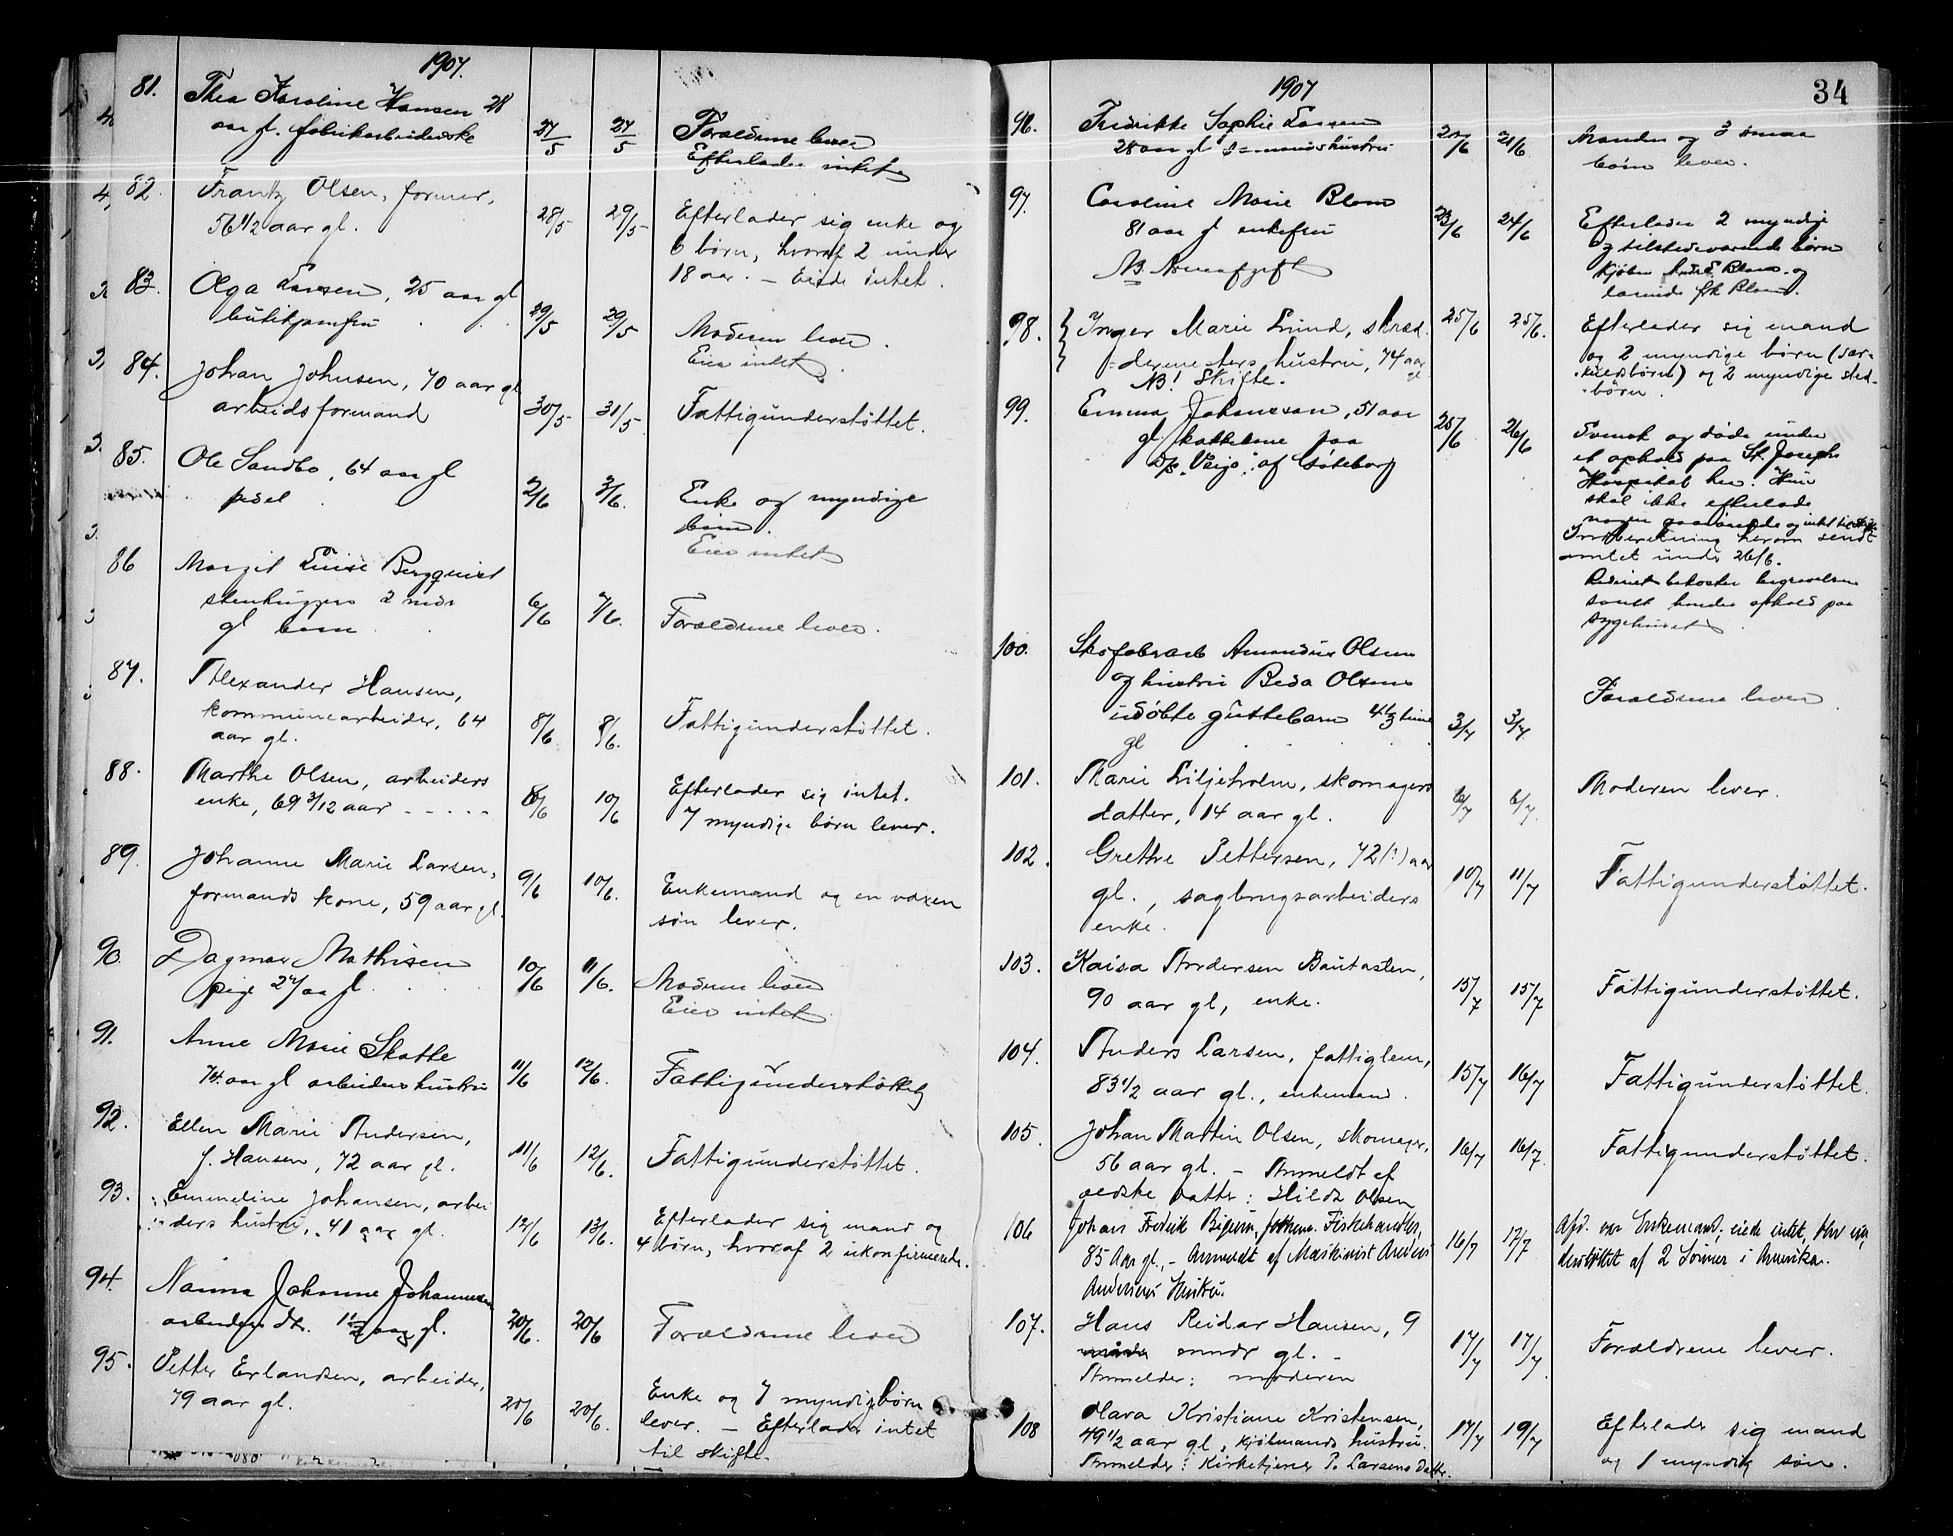 1907.
81. Thea Karoline Hansen 28
aar gl. fabrikarbeiderske 27/5 27/5 Forældrene lever
Efterlader intet
82. Frantz Olsen, former,
56 1/2 aar gl. 28/5 29/5 Efterlader sig enke og
6 børn, hvoraf 2 under
18 aar. - Eiede intet.
83. Olga Larsen, 25 aar gl
butikjomfru 29/5 29/5 Moderen lever.
Eier intet.
84. Johan Johnsen, 70 aar gl
arbeidsformand 30/5 31/5 Fattigunderstøttet.
85. Ole Sandbo, 64 aar gl
pedel 2/6 3/6. Enke og myndige
børn.
Eier intet
86 Margit Luise Bergquist
stenhuggers 2 mdr
gl barn 6/6 7/6. Forældrene lever.
87. Alexander Hansen,
kommunearbeider, 64
aar gl. 8/6 8/6. Fattigunderstøttet.
88. Marthe Olsen, arbeiders
enke, 69 3/12 aar - - - - - 8/6 10/6 Efterlader sig intet.
7 myndige børn lever.
89. Johanne Marie Larsen,
formands kone, 59 aar gl. 9/6 10/6. Enkemand og en voxen
søn lever.
90. Dagmar Mathisen
pige 27 aar gl 10/6 11/6. Moderen lever
Eier intet
91. Anne Marie Skatte
74 aar gl arbeiders hustru 11/6 12/6. Fattigunderstøttet
92. Ellen Marie Andersen,
f. Hansen, 72 aar gl. 11/6 12/6. Fattigunderstøttet.
93. Emmeline Johansen, arbei
ders hustru, 41 aar gl. 12/6 13/6. Efterlader sig mand og
4 børn, hvoraf 2 ukonfirmerede.
94. Nanna Johanne Johannesen
arbeiders dtr. 1 1/2 aar gl. 20/6. 20/6 Forældrene lever
95. Petter Erlandsen, arbeider,
79 aar gl. 20/6 20/6. Enke og 7 myndige børn
lever. - Efterlader intet
til skifte.
34
1907
96. Fredrikke Sophie Larsen
28 aar gl sømands hustru 21/6 21/6. Manden og 3 smaa
børn lever.
97. Caroline Marie Blom
81 aar gl enkefru 23/6 24/6 Efterlader 2 myndige
og tilstedeværende børn
NB. Arveafgift
Kjøbm. Blom og
frk Blom.
98. Inger Marie Lund, skræd-
dermesters hustru, 74 aar gl 25/6 25/6. Efterlader sig mand
og 2 myndige børn (sær-
kuldsbørn) og 2 myndige sted-
børn.
NB! Skifte.
99. Emma Johansson, 51 aar
gl paa
D/s "Veijo" af Gøteborg 25/6 26/6 Svensk og døde under
et ophold paa St. Josephs
Hospital her. Hun
skal ikke efterlade
nogen og intet til skifte.
Indberetning herom sendt
amtet under 26/6.
Rederiet bekoster begravelsen
samt hendes ophold paa
sygehuset
100. Skofabrarb Amandus Olsen
og hustru Beda Olsens
udøbte guttebarn 4 1/3 time
gl 3/7 3/7. Forældrene lever
101. Marie Liljeholm, skomagers
datter, 14 aar gl. 6/7 6/7. Moderen lever.
102. Grethe Pettersen, 72 (!) aar
gl., sagbrugsarbeiders
enke. 10/7 11/7 Fattigunderstøttet.
103. Kaisa Andersen Bautasten,
90 aar gl, enke. 15/7 15/7 Fattigunderstøttet.
104. Anders Larsen, fattiglem,
83 1/2 aar gl., enkemand. 15/7 16/7 Fattigunderstøttet.
105. Johan Martin Olsen, skomager,
56 aar gl. - Anmeldt af
ældste datter: Hilda Olsen 16/7 16/7. Fattigunderstøttet.
106 Johan Fredrik Fiskehandler,
85 Aar gl., - Anmeldt af Maskinist Anders
Andersens Hustru. 16/7 17/7 Afd. var Enkemand, eiede intet, blev un-
derstøttet af 2 Sønner i Amerika.
107. Hans Reidar Hansen, 9
mndr gl. -
Anmelder: moderen 17/7 17/7 Forældrene lever.
108 Olava Kristiane Kristensen,
49 1/2 aar gl, kjølmands hustru.
Anmelder: Kirketjener P. Larsens Datter. 17/7 19/7 Efterlader sig mand
og 1 myndig søn.